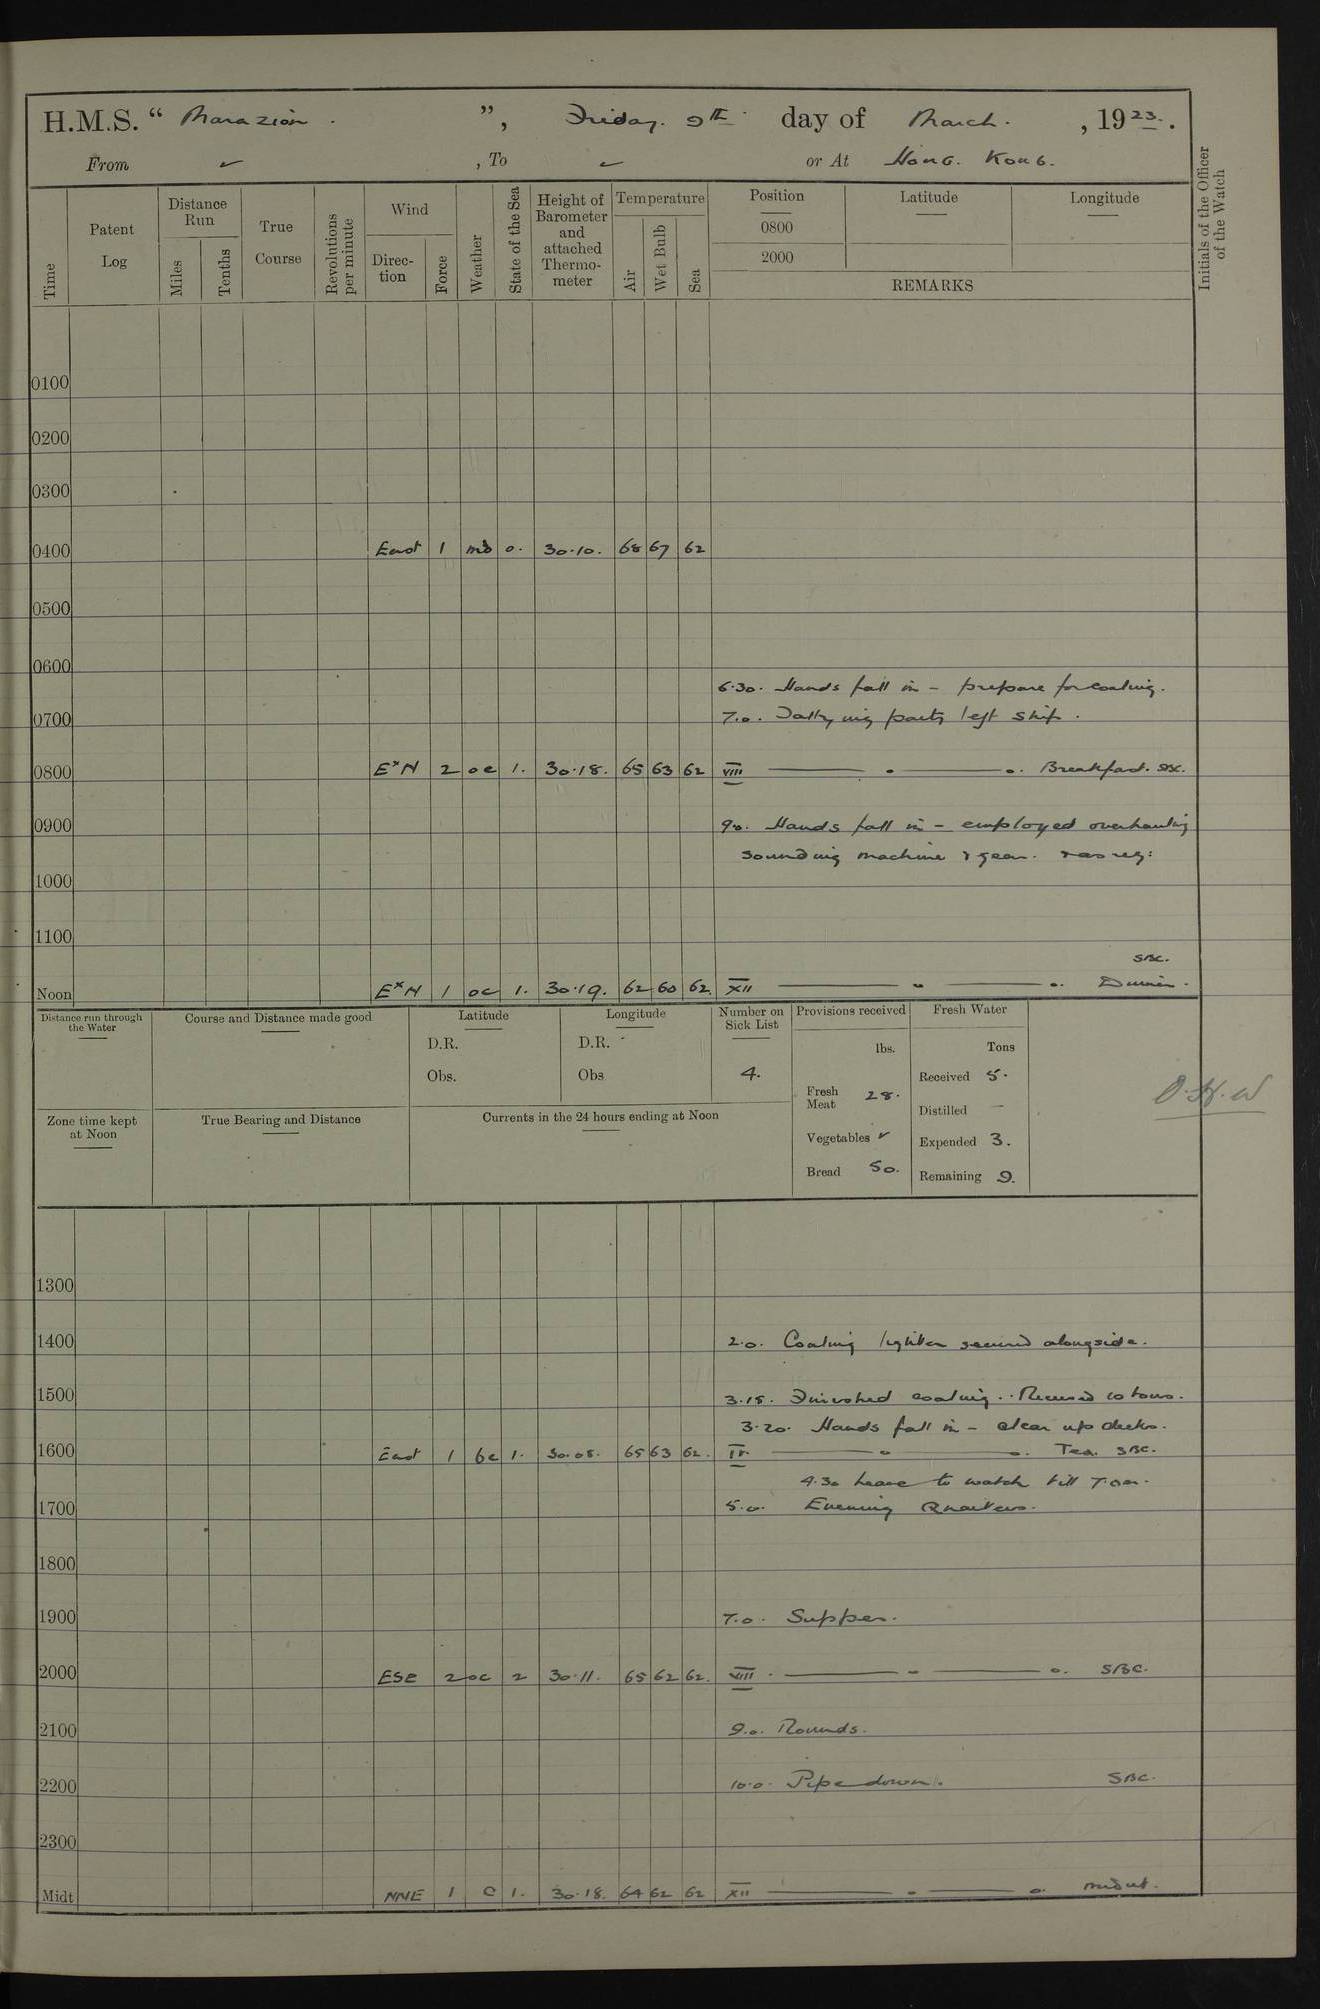 H.M.S. “ Marazion . ”, Friday. 9th. day of March. , 1923. .
From ✓ , To ✓ or At Hong. Kong.
Time
Patent Log
Distance Run
Miles
Tenths
True Course
Revolutions per minute
Wind
Direction
Force
Weather
State of the Sea
Height of Barometer and attached Thermometer
Temperature
Air
Wet Bulb
Sea
Position
0800
2000
Latitude
Longitude
REMARKS
Initials of the Officer of the Watch
0100
0200
0300
0400 East 1 o. 30.10. 68 67 62
0500
0600
6.30. Hands fall in – prepare for coaling.
0700 7.0. party left ship.
0800 E×N 2 oc 1. 30.18. 65 63 62 VIII ——— " ——— ". Breakfast. SBC.
0900 9.0. Hands fall in – employed overhauling
sounding machine & gear.
1000
1100
SBC.
Noon E×N 1 oc 1. 30.19. 62 60 62. XII ——— " ——— ". Dinner.
Distance run through the Water
Course and Distance made good
Latitude
D.R.
Obs.
Longitude
D.R.
Obs
Number on Sick List
4.
Provisions received
lbs.
Fresh Meat 28.
Vegetables ✓
Bread 50.
Fresh Water
Tons
Received 5.
Distilled –
Expended 3.
Remaining 9.
Zone time kept at Noon
True Bearing and Distance
Currents in the 24 hours ending at Noon
1300
1400 2.0. Coaling lighter secured alongside.
1500 3.15. Finished coaling. Received tons.
3.20. Hands fall in – clear up decks.
1600 East 1 bc 1. 30.08. 65 63 62. IV. ——— " ——— ". Tea. SBC.
4.30 Leave to watch till 7.0am.
1700 5.0. Evening Quarters.
1800
1900 7.0. Supper.
2000 ESE 2 oc 2 30.11. 65 62 62. VIII. ——— " ——— ". SBC.
2100 9.0. Rounds.
2200 10.0. Pipe down. SBC.
2300
Midt NNE 1 c 1. 30.18. 64 62 62 XII ——— " ——— ".